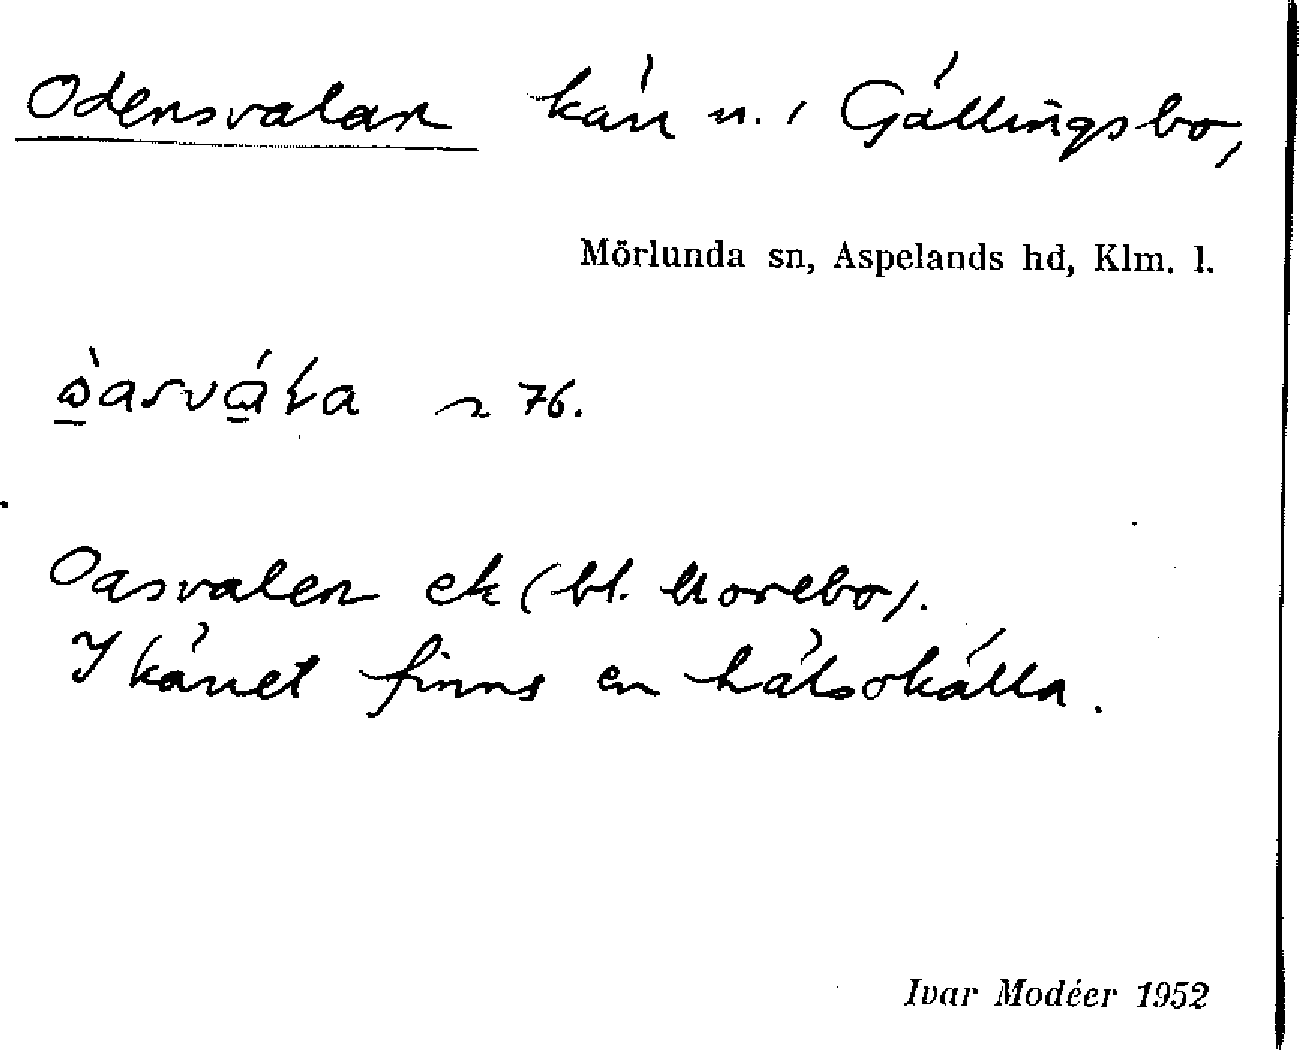 Odensvalan kärr n. i Gällingsbo,
Mörlunda sn, Aspelands hd, Klm. l.
76.
Oasvalen ek (bl. Morebo).
I kärret finns en hälsokälla.
Ivar Modéer 1952